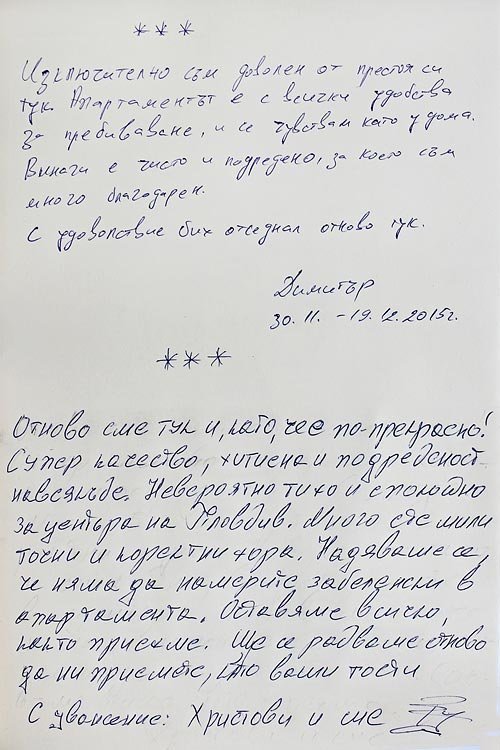 * * *
Изключително съм доволен от престоя си
тук. Апартаментът е с всички удобства
за пребиваване, и се чувствам като у дома.
Винаги е чисто и подредено, за което съм
много благодарен.
С удоволствие бих отседнал отново тук.
Димитър
30.11. – 19.12.2015г.
* * *
Отново сме тук и, като, че е по-прекрасно!
Супер качество, хигиена и подреденост
навсякъде. Невероятно тихо и спокойно
за центъра на Пловдив. Много сте мили
точни и коректни хора. Надяваме се,
че няма да намерите забележки в
апартамента. Оставяме всичко,
както приехме. Ще се радваме отново
да ни приемете, като ваши гости
С уважение: Христови и ше